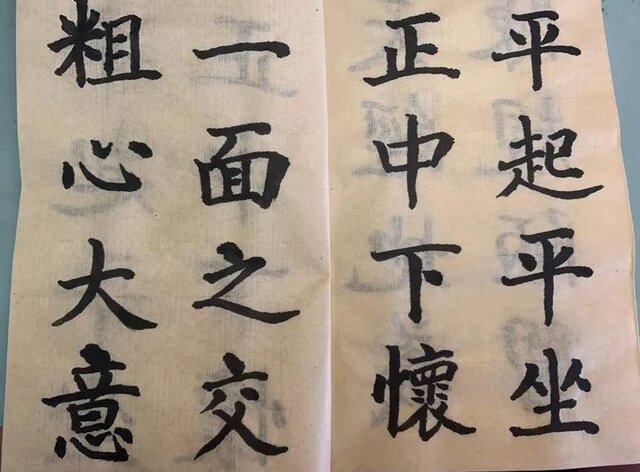 平起平坐
正中下懷
一面之交
粗心大意